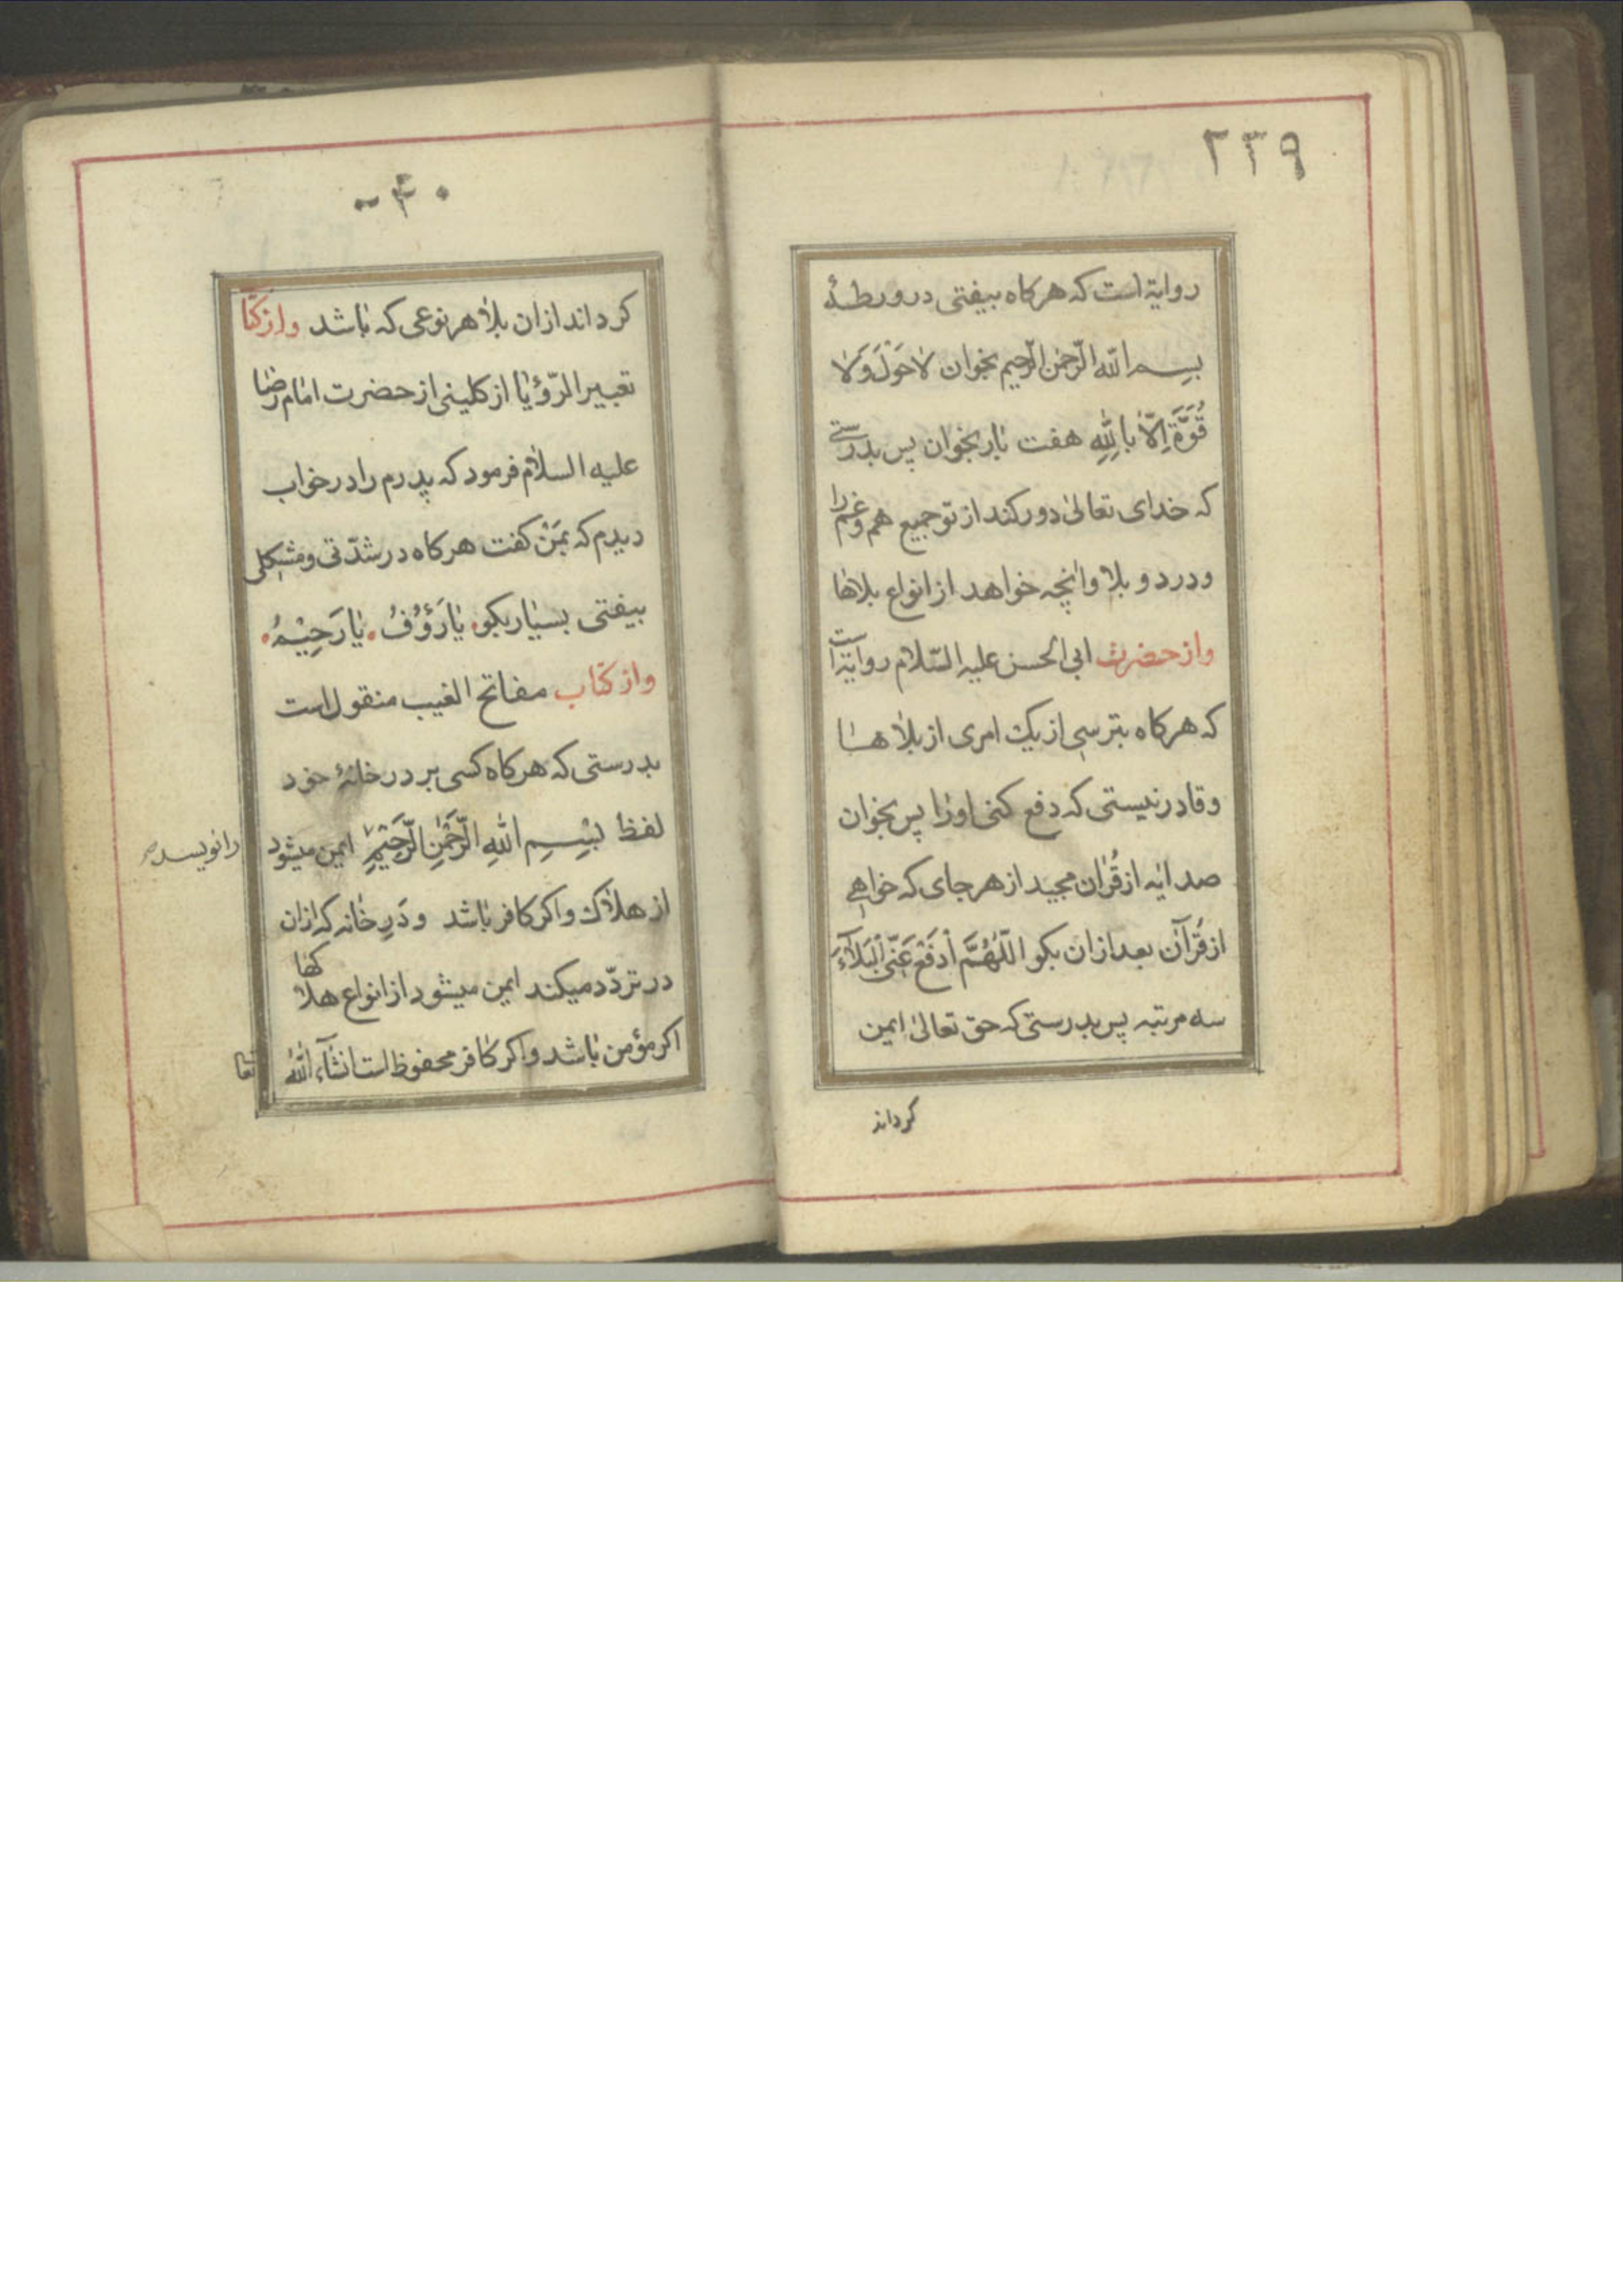 ۲۳۹
روایة است که هرکاه بیفتی در ورطهٔ
بسم الله الرّحمن الرّحیم بخوان لاٰ حَوْلَ وَلاٰ
قُوَّةَ اِلاّٰ بِاللّٰهِ هفت بٰار بخوان پس بدرستی
که خدای تعالیٰ دور کند از تو جمیع هم و غم را
و درد و بلا و اٰنچه خواهد از انواع بلاهٰا
و از حضرت ابی الحسن علیه السّلام روایة است
که هرکاه بترسی از یک امری از بلاٰ هٰا
و قادر نیستی که دفع کنی اورٰا پس بخوان
صد اٰیه از قُرٰان مجید از هر جای که خواهی
از قُرآن بعد ازان بکو اللّٰهُمَّ اْدفَعْ عَنّی اْلبَلآٰءَ
سه مرتبه پس بدرستی که حق تعالیٰ ایمن
کرداند
۲۴۰
کرداند ازان بلاٰ هر نوعی که بٰاشد و از کتٰا
تعبیر الرّؤیٰا از کلینی از حضرت امٰام رضٰا
علیه السلاٰم فرمود که پدرم را در خواب
دیدم که بمَنْ کفت هرکاه در شدّتی و مشکلی
بیفتی بسیٰار بکو یٰا رَؤُفُ یٰا رَحِیْمُ
و از کتٰاب مفاتح الغیب منقول است
بدرستی که هرکاه کسی بر در خانهٔ خود
لفظ بِسْمِ اللّٰهِ الرَّحْمٰنِ الرَّحِیْمِ ایمن میشود
را نویسد
از هلاٰک و اکر کافر بٰاشد و دَرِ خٰانه که ازان
در تردّد میکند ایمن میشود از انواع هلاٰکها
اکر مؤمن بٰاشد و اکر کٰافر محفوظ است انشآء اللّٰه تعا